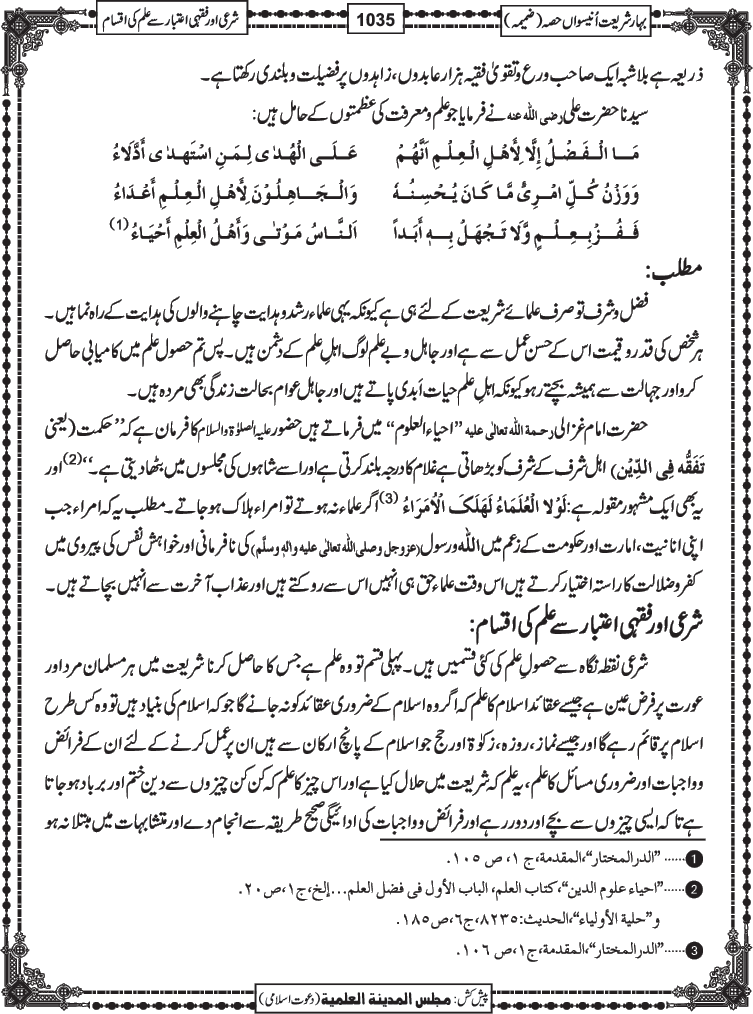 بہار شریعت اُنیسواں حصہ (ضمیمہ)
1035
شرعی اور فقہی اعتبار سے علم کی اقسام
ذریعہ ہے بلاشبہ ایک صاحب ورع و تقویٰ فقیہ ہزار عابدوں، زاہدوں پر فضیلت و بلندی رکھتا ہے۔
سیدنا حضرت علی رضی اللہ عنہ نے فرمایا جو علم و معرفت کی عظمتوں کے حامل ہیں:
مَا الْفَضْلُ إِلَّا لِأَهْلِ الْعِلْمِ اَنَّهُمْ عَلَى الْهُدٰى لِمَنِ اسْتَهْدٰى أَدَّلَاءُ
وَوَزْنُ كُلِّ امْرِئٍ مَّا كَانَ يُحْسِنُهُ وَالْجَاهِلُوْنَ لِأَهْلِ الْعِلْمِ أَعْدَاءُ
فَفُزْ بِعِلْمٍ وَّلَا تَجْهَلْ بِهٖ أَبَداً اَلنَّاسُ مَوْتٰى وَأَهْلُ الْعِلْمِ أَحْيَاءُ (1)
مطلب:
فضل و شرف تو صرف علمائے شریعت کے لئے ہی ہے کیونکہ یہی علماء رشد و ہدایت چاہنے والوں کی ہدایت کے راہ نما ہیں۔
ہر شخص کی قدر و قیمت اس کے حسن عمل سے ہے اور جاہل و بے علم لوگ اہلِ علم کے دشمن ہیں۔ پس تم حصول علم میں کامیابی حاصل
کرو اور جہالت سے ہمیشہ بچتے رہو کیونکہ اہلِ علم حیات اَبدی پاتے ہیں اور جاہل عوام بحالت زندگی بھی مردہ ہیں۔
حضرت امام غزالی رحمۃ اللہ تعالی علیہ ”احیاء العلوم“ میں فرماتے ہیں حضور علیہ الصلوٰۃ والسلام کا فرمان ہے کہ ”حکمت (یعنی
تَفَقُّه فِی الدِّیْن) اہل شرف کے شرف کو بڑھاتی ہے غلام کا درجہ بلند کرتی ہے اور اسے شاہوں کی مجلسوں میں بٹھا دیتی ہے۔“(2) اور
یہ بھی ایک مشہور مقولہ ہے: لَوْلَا الْعُلَمَاءُ لَهَلَكَ الْأُمَرَاءُ (3) اگر علماء نہ ہوتے تو امراء ہلاک ہو جاتے۔ مطلب یہ کہ امراء جب
اپنی انانیت، امارت اور حکومت کے زعم میں اللہ و رسول (عزوجل وصلی اللہ تعالٰی علیہ والہٖ وسلَّم) کی نافرمانی اور خواہش نفس کی پیروی میں
کفر و ضلالت کا راستہ اختیار کرتے ہیں اس وقت علماء حق ہی انہیں اس سے روکتے ہیں اور عذاب آخرت سے انہیں بچاتے ہیں۔
شرعی اور فقہی اعتبار سے علم کی اقسام:
شرعی نقطہ نگاہ سے حصولِ علم کی کئی قسمیں ہیں۔ پہلی قسم تو وہ علم ہے جس کا حاصل کرنا شریعت میں ہر مسلمان مرد اور
عورت پر فرض عین ہے جیسے عقائد اسلام کا علم کہ اگر وہ اسلام کے ضروری عقائد کو نہ جانے گا جو کہ اسلام کی بنیاد ہیں تو وہ کس طرح
اسلام پر قائم رہے گا اور جیسے نماز، روزہ، زکوٰۃ اور حج جو اسلام کے پانچ ارکان سے ہیں ان پر عمل کرنے کے لئے ان کے فرائض
و واجبات اور ضروری مسائل کا علم، یہ علم کہ شریعت میں حلال کیا ہے اور اس چیز کا علم کہ کن کن چیزوں سے دین ختم اور برباد ہو جاتا
ہے تا کہ ایسی چیزوں سے بچے اور دور رہے اور فرائض و واجبات کی ادائیگی صحیح طریقہ سے انجام دے اور متشابہات میں مبتلا نہ ہو
1 ...... ”الدرالمختار“، المقدمة، ج ١، ص ١٠٥.
2 ...... ”احیاء علوم الدین“، کتاب العلم، الباب الأول فی فضل العلم...إلخ، ج١، ص ٢٠.
و ”حلیة الأولیاء“، الحدیث: ٨٢٣٥، ج٦، ص ١٨٥.
3 ...... ”الدرالمختار“، المقدمة، ج ١، ص ١٠٦.
پیش کش: مجلس المدينة العلمية (دعوت اسلامی)